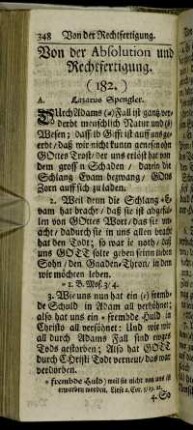 348 Von der Rechtfertigung.
Von der Absolution und
Rechtfertigung.
(182.)
A. Lazarus Spengler.
DUrch Adams (a) Fall ist gantz ver-
derbt menschlich Natur und
Wesen; dasselb Gifft ist auff uns ge-
erbt, daß wir nicht kunten genesen ohn
GOttes Trost, der uns erlöst hat von
dem grossen Schaden, darein die
Schlang Evam bezwang, GOtts
Zorn auff sich zu laden.
2. Weil denn die Schlang Evam
hat bracht, daß sie ist abgefal-
len von GOttes Wort, das sie ver-
acht, dadurch sie in uns allen bracht
hat den Todt; so war je noth, daß
uns GOTT solte geben seinn lieben
Sohn, den Gnaden-Thron, in dem
wir möchten leben.
1. B. Mos. 3/4.
3. Wie uns nun hat ein (a) fremb-
de Schuld in Adam all verhönet;
also hat uns ein fremdde Huld in
Christo all versöhnet: Und wie wir
all durch Adams Fall sind ewges
Tods gestorben; Also hat GOTT
durch Christi Todt verneut, das war
verdorben.
fremdde Huld) weil sie nicht von uns ist
erworben worden. Liese 2. Cor.
4. So